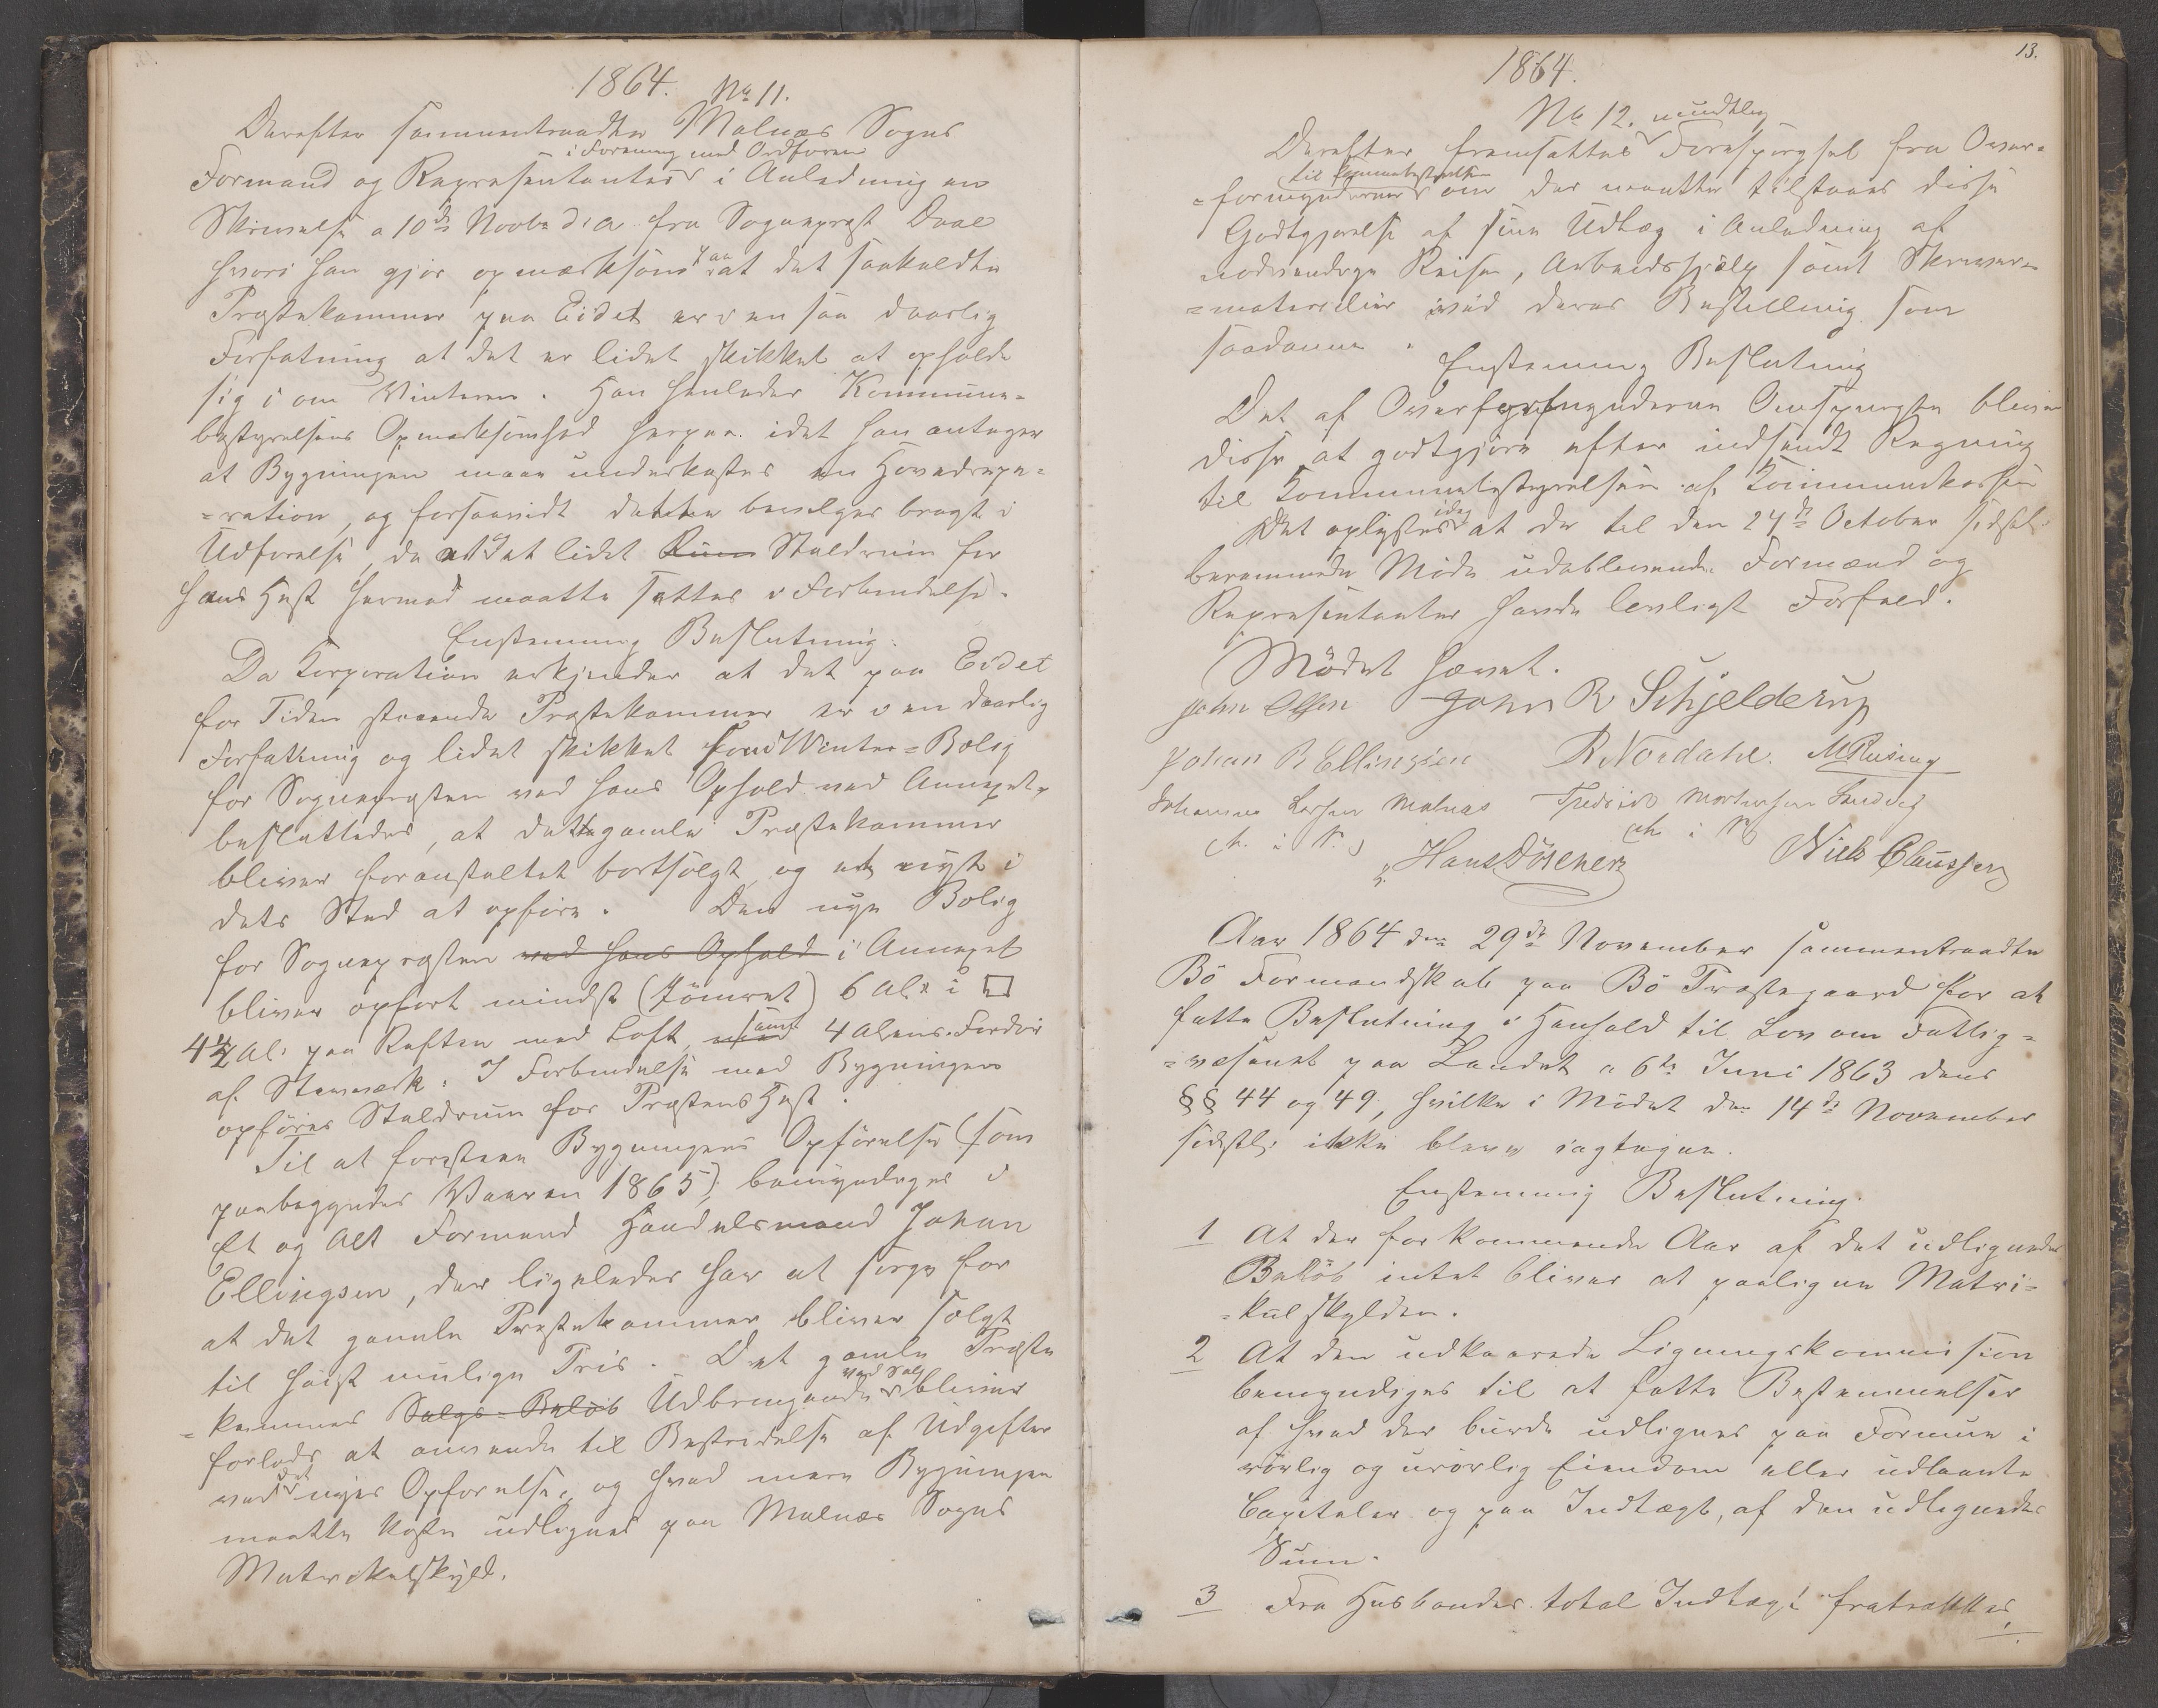 1864.
No 11.
Derefter sammentraadte Malnæs Sogns
i Forening med Ordføreren
Formænd og Repræsentanter i Anledning en
Skrivelse a 10de Novbr d: A. fra Sognepræst Daae
hvori han gjør opmærksom paa at det saakaldte
Præstekammer paa Eidet er i en saa daarlig
Forfatning at det er lidet skikket at opholde
sig i om Vinteren. Han henleder Kommune-
bestyrelsens Opmærksomhed herpaa. idet han antager
at Bygningen maa underkastes en Hovedrepa-
=ration, og forsaavidt dette bevilges bragt i
Udførelse, da at et lidet Rum Staldrum for
hans Hest hermed maatte sættes i Forbindelse.
Enstemmig Beslutning:
Da Korporation erkjender at det paa Eidet
for Tiden staaende Præstekammer er i en daarlig
Forfatning og lidet skikket som Vinter=Bolig
for Sognepræsten ved hans Ophold ved Annexet,
besluttedes, at dette gamle Præstekammer
bliver foranstaltet bortsolgt, og et nyt i
dets Sted at opføre. Den nye Bolig
for Sognepræsten ved hans Ophold i Annexet
bliver opført mindst (Tømret) 6 Al: i □
4½ Al: paa Røften med Loft, med samt 4 Alens Fordør
af Stavværk. I Forbindelse med Bygningen
opføres Staldrum for Præstens Hest.
Til at forestaa Bygningens Opførelse (som
paabegyndes Vaaren 1865), bemyndiges i
Et og Alt Formand Handelsmand Johan
Ellingsen, der ligeledes har at sørge for
at det gamle Præstekammer bliver solgt
til høist mulige Pris. Det gamle Præste
=kammers Salgs=Beløb Udbringende ved Salg bliver
forlods at anvende til Bestridelse af Udgifter
ved det nyes Opførelse, og hvad mere Bygningen
maatte koste udlignes paa Malnæs Sogns
Matrikelskyld.
13.
1864.
No 12. mundtlig
Derefter fremsattes Forespørgsel fra Over-
til Kommunebestyrelsen
=formynderne om der maatte tilstaaes disse
Godtgjørelse af sine Udlæg i Anledning af
nødvendige Reiser, Arbeidshjælp samt Skriver-
=materialier ved deres Bestilling som
saadanne.
Enstemmig Beslutning
Det af Overformynderne Omspurgte bliver
disse at godtgjøre efter indsendt Regning
til Kommunebestyrelsen af Kommunekassen
Det oplystes idag at de til den 24de October sidstl:
berammede Møde udeblevende Formænd og
Repræsentanter havde lovligt Forfald.
Mødet hævet.
John Olsen John R Schjelderup
Johan R Ellingsen R Nordahl. M Rusing
Johannes Larsen Malnæs Fredrik Mortensen Sandvig
m. i P. m i P
Hans Döscher Niels Claussen
Aar 1864 den 29de November sammentraadte
Bö Formandskab paa Bö Præstegaard for at
fatte Beslutning i Henhold til Lov om Fattig-
=væsenet paa Landet a 6te Juni 1863 dens
§§ 44 og 49, hvilke i Mödet den 14de November
sidstl: ikke bleve iagttagne.
Enstemmig Beslutning.
1 At der for kommende Aar af det udlignede
Beløb intet bliver at paaligne Matri-
=kulskylden.
2 At den udkaarede Ligningskommission
bemyndiges til at fatte Bestemmelser
af hvad der burde udlignes paa Formue i
rörlig og urörlig Eiendom eller udlaante
Capitaler og paa Indtægt, af den udlignede
Sum.
3 Fra Husbondes total Indtægt fratrækkes